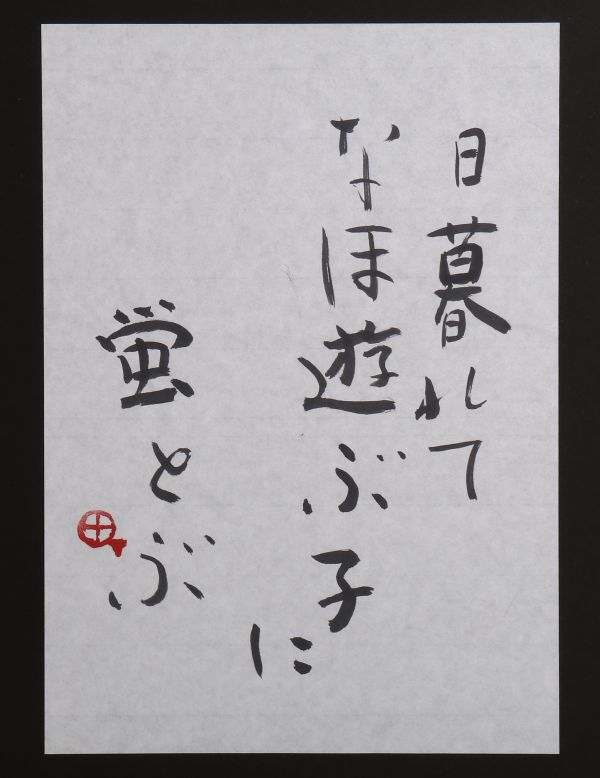 日暮れて
なほ遊ぶ子に
蛍とぶ